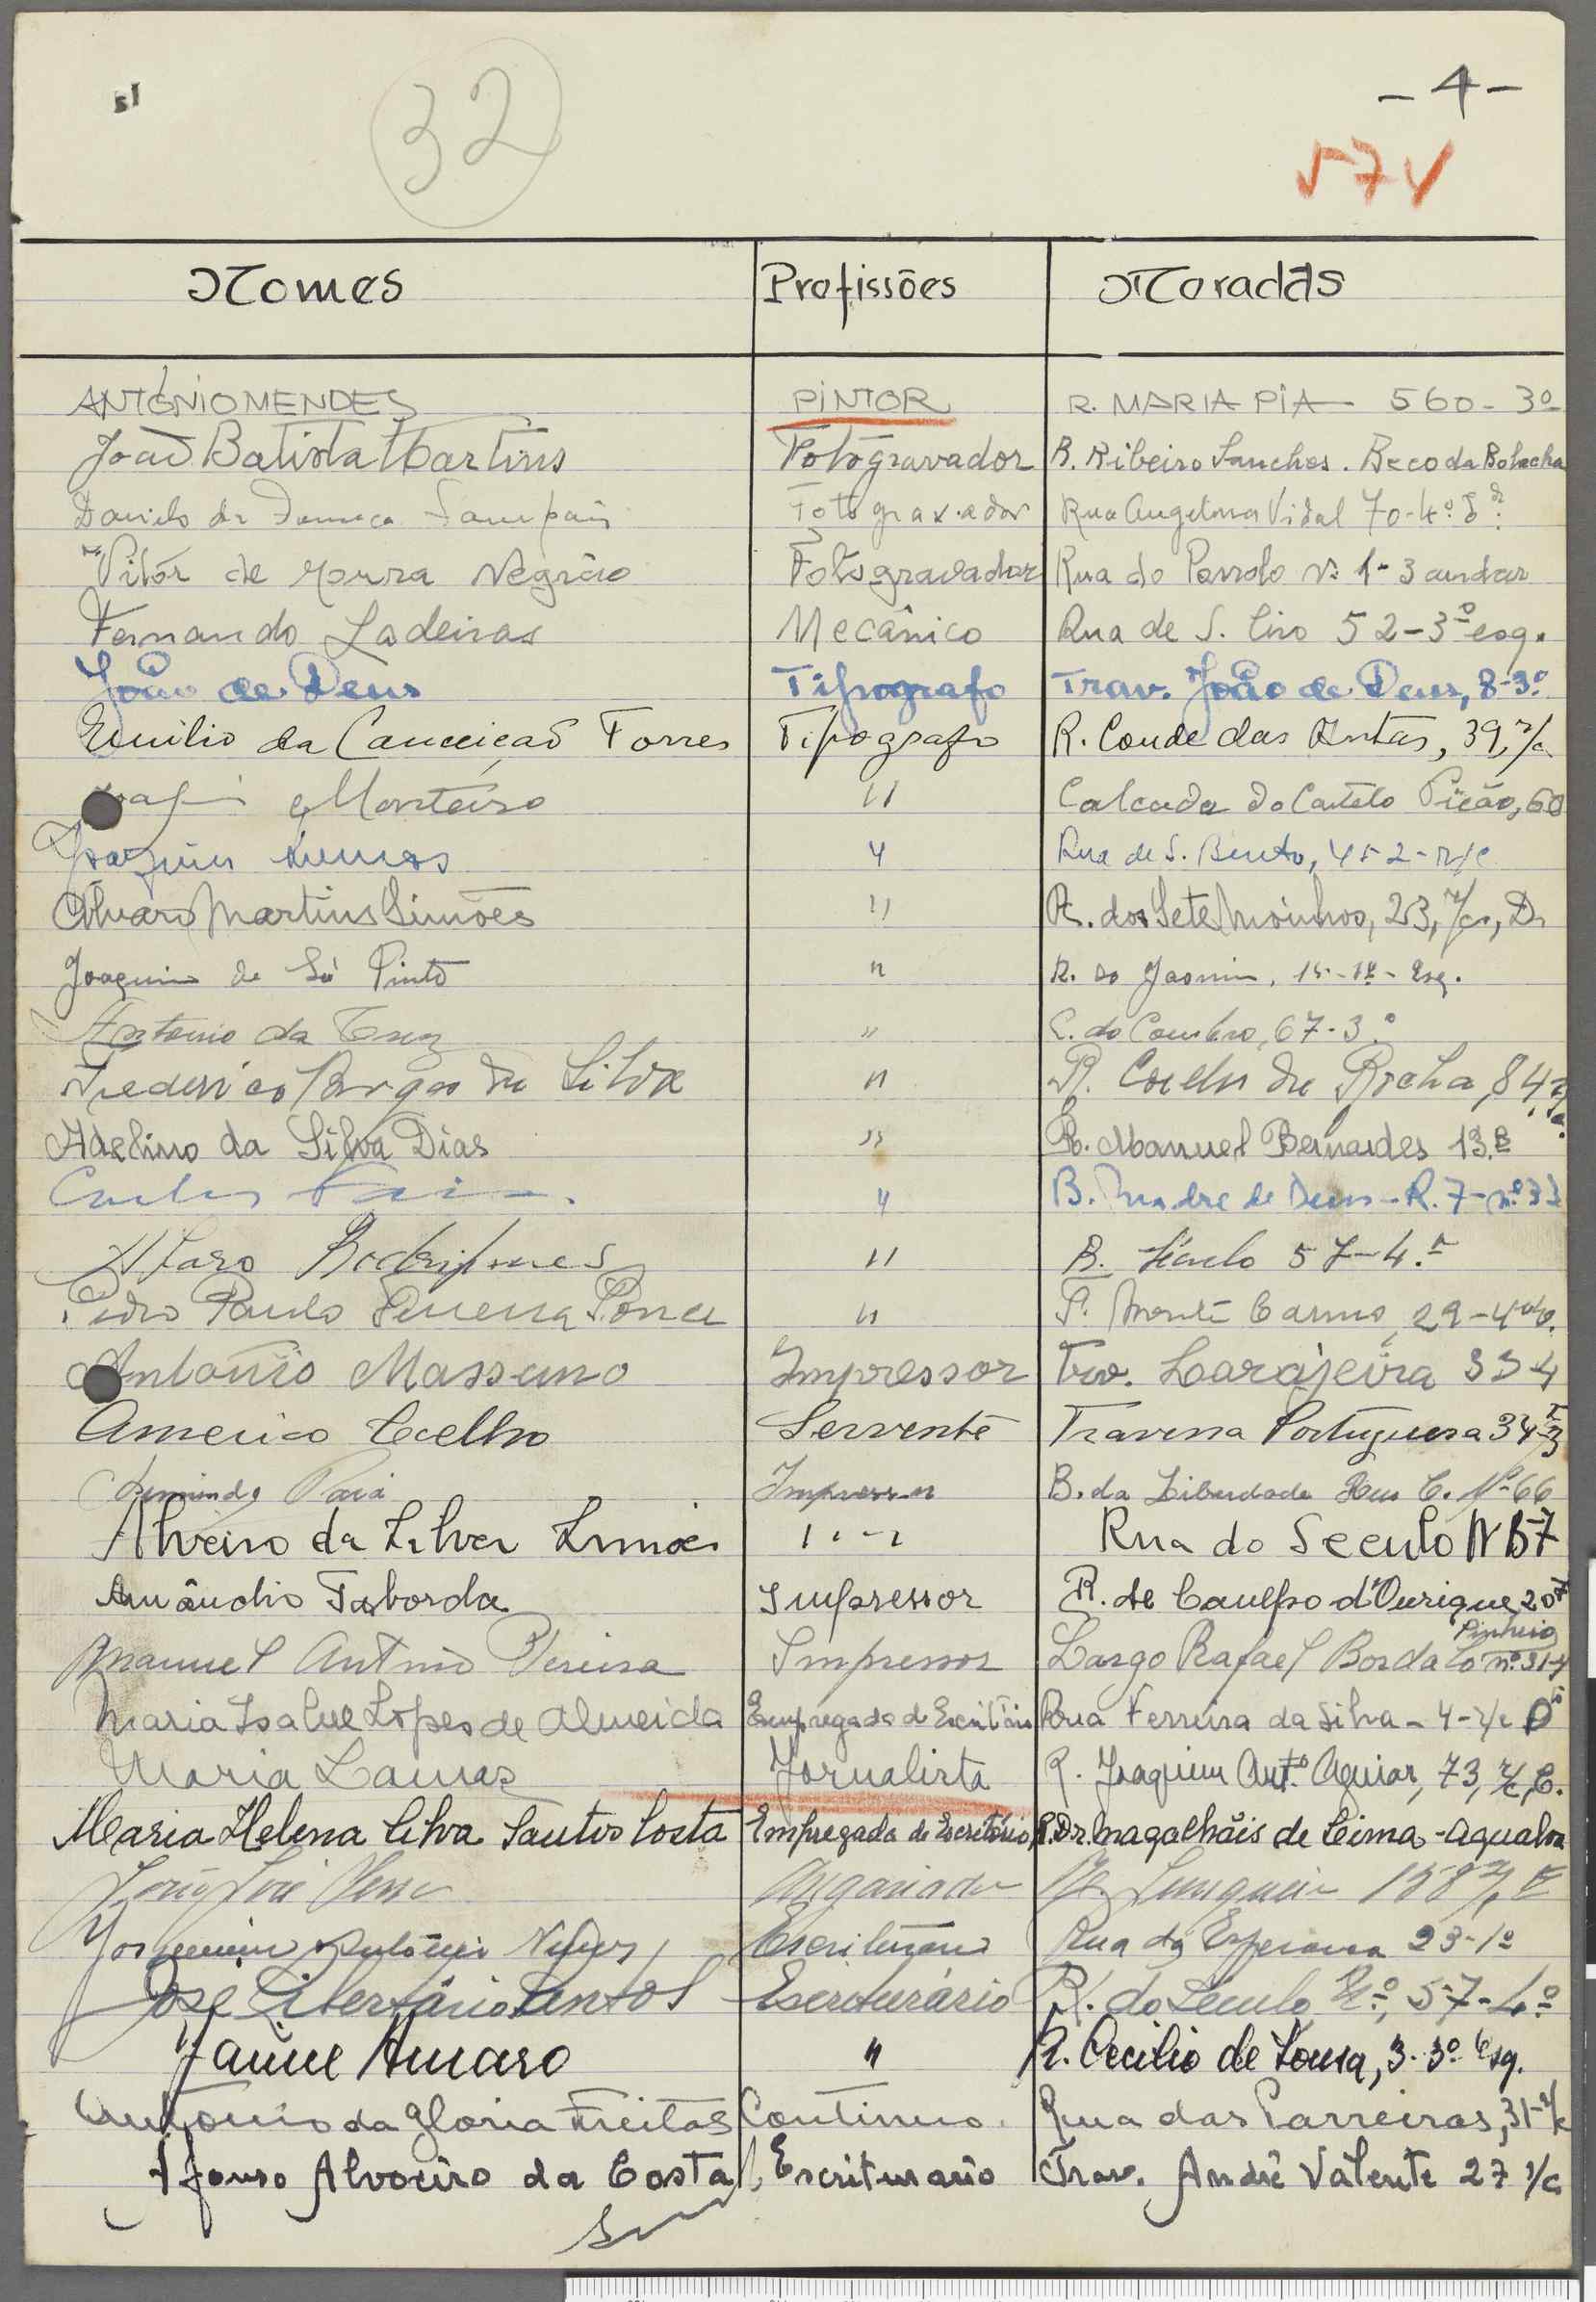 sl
32
- 4 -
57V
Nomes Profissões Moradas
ANTÓNIO MENDES PINTOR R. MARIA PIA 560-3º
João Batista Martins Fotogravador R. Ribeiro Sanches. Beco da Bolacha
Fotogravador Rua Angelina Vidal 70-4º
Vitór de Moura Negrão Fotogravador Rua do Nº 1-3 andar
Fernando Ladeiras Mecânico Rua de S. Ciro 52-3º esq.
João de Deus Tipografo Trav. João de Deus, 8-3º
Emilio da Conceição Torres Tipografo R. Conde das Antas, 39, r/c
Monteiro " Calcada do Castelo Picão, 60
Joaquim Lemos " Rua de S. Bento, 452-r/c
Alvaro Martins Simões " R. dos Sete Moinhos, 23, r/c, D.
Joaquim de Sá Pinto " R. do Jasmim, 15-1º-Esq.
Antonio da Cruz " C. do Combro, 67-3º
Frederico Borges da Silva " R. Coelho da Rocha, 84,
Adelino da Silva Dias " R. Manuel Bernardes 13.B
Carlos " B. Madre de Deus-R. 7-nº 33
Alvaro Rodrigues " R. Século 57-4.º
Pedro Paulo Ponce " T. Monte Carmo, 29-4º
António Massano Impressor Trav. Larajeira 33 4
Americo Coelho Servente Travessa Portuguesa 34
Armindo Paia Impressor B. da Liberdade Rua C. Nº 66
Alveiro da Silva Simões " Rua do Seculo N 57
Amândio Taborda Impressor R. de Campo d'Ourique, 207
Manuel António Pereira Impressor Largo Rafael Bordalo Pinheiro nº 31-4
Maria Isabel Lopes de Almeida Empregada de Escritório Rua Ferreira da Silva-4-r/c Dº
Maria Lamas Jornalista R. Joaquim Antº Aguiar, 73, r/c, E.
Maria Helena Silva Santos Costa Empregada de Escritório R. Dr. Magalhãis de Lima-Agualva
João José Angariador R. Junqueira 158
Joaquim António Escriturário Rua da Esperança 23-1º
José Libertário Santos Escriturário R. do Século, Nº, 57-4º
Jaime Amaro " R. Cecilio de Sousa, 3-3º Esq.
Antonio da Gloria Freitas Contínuo. Rua das Parreiras, 31-r/c
Afonso Alvoeiro da Costa Escriturario Trav. André Valente 27 r/c